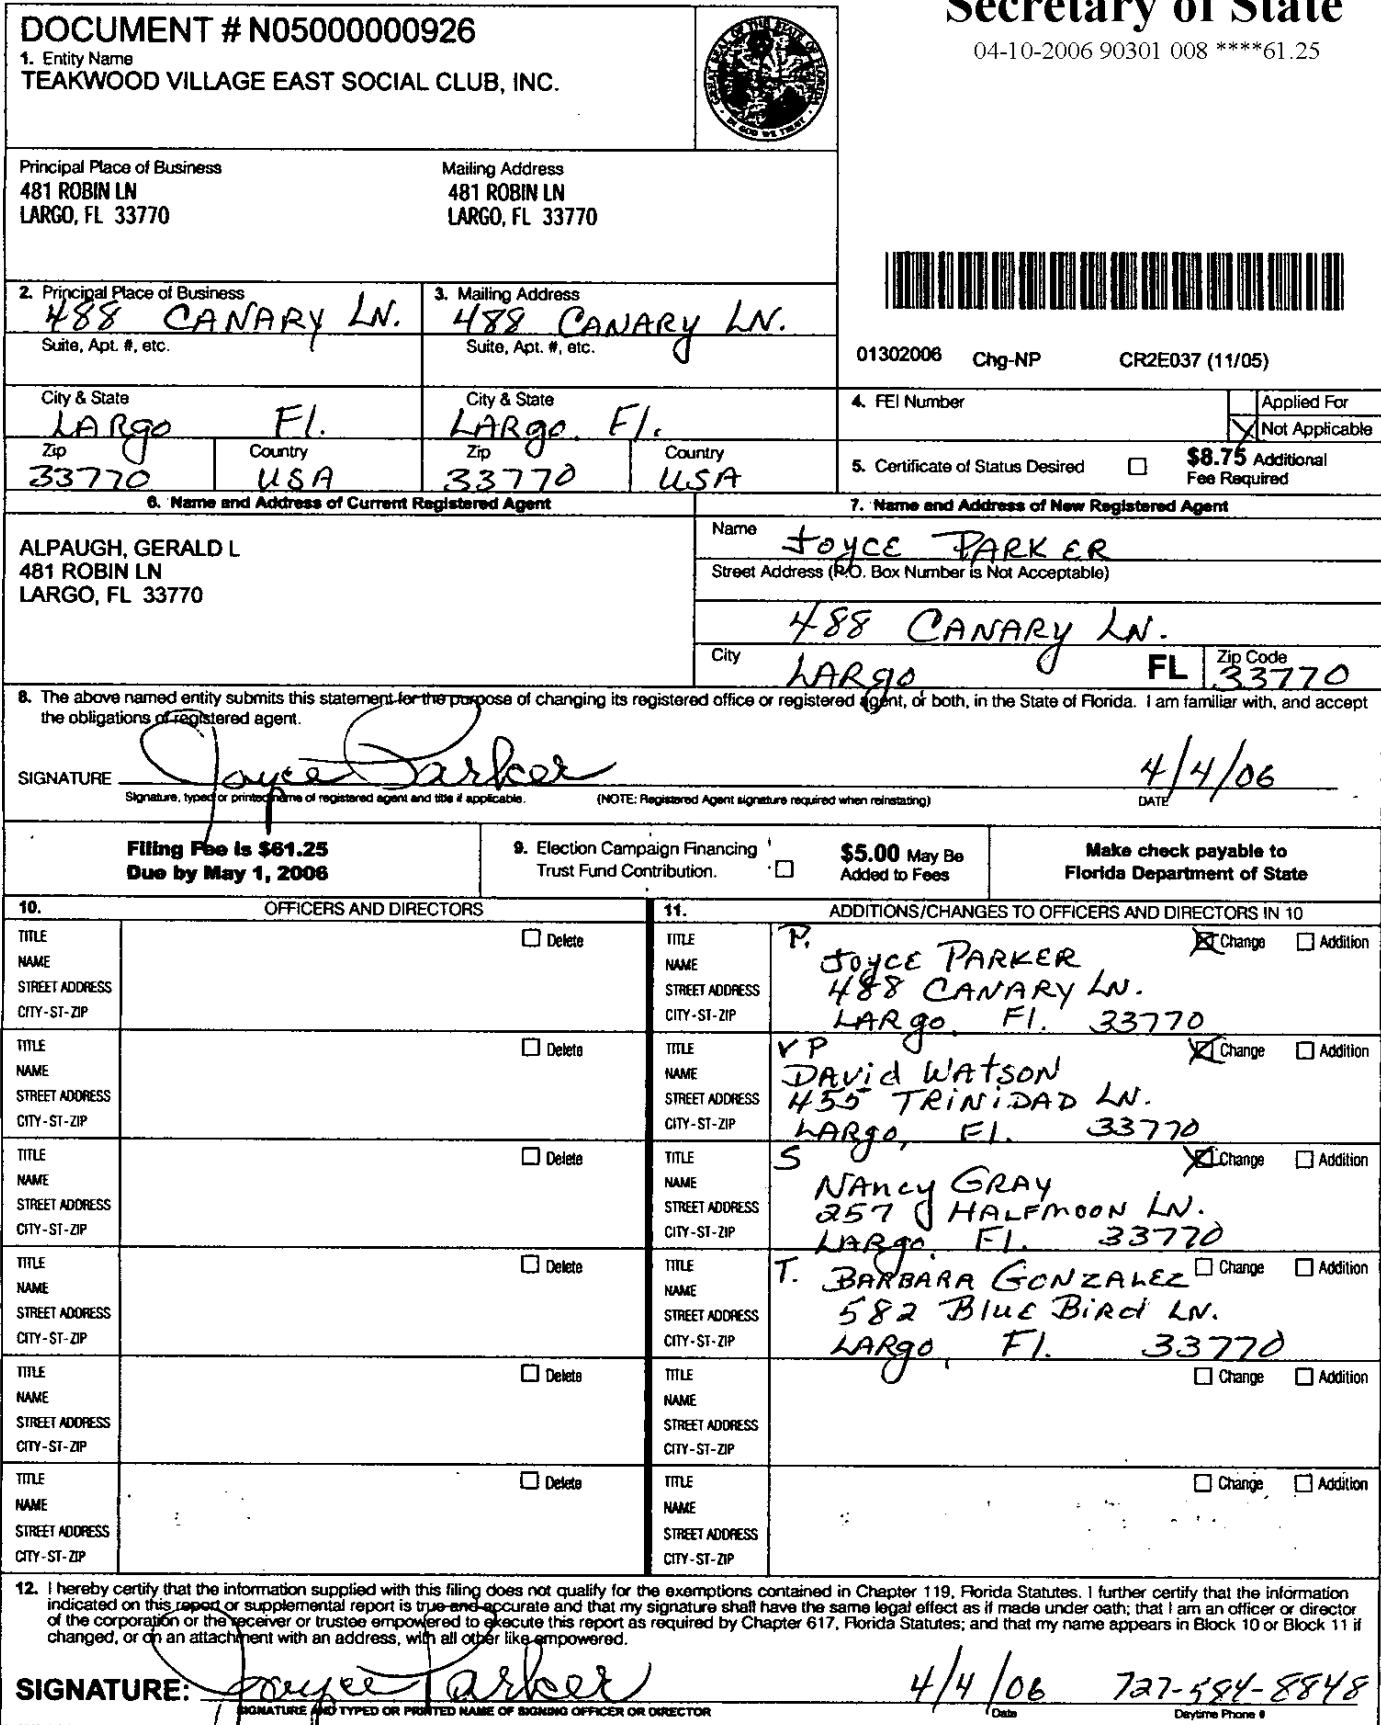 Secretary of State
04-10-2006 90301 008 ****61.25
DOCUMENT # N05000000926
1. Entity Name
TEAKWOOD VILLAGE EAST SOCIAL CLUB, INC.
GREAT SEAL OF THE STATE OF FLORIDA
IN GOD WE TRUST
Principal Place of Business
481 ROBIN LN
LARGO, FL 33770
Mailing Address
481 ROBIN LN
LARGO, FL 33770
2. Principal Place of Business
488 CANARY LN.
Suite, Apt. #, etc.
3. Mailing Address
488 CANARY LN.
Suite, Apt. #, etc.
01302006 Chg-NP CR2E037 (11/05)
City & State
LARgo Fl.
City & State
LARgo, Fl.
Zip
33770
Country
USA
Zip
33770
Country
USA
4. FEI Number
Applied For
Not Applicable
5. Certificate of Status Desired
$8.75 Additional
Fee Required
6. Name and Address of Current Registered Agent
ALPAUGH, GERALD L
481 ROBIN LN
LARGO, FL 33770
7. Name and Address of New Registered Agent
Name
JOYCE PARKER
Street Address (P.O. Box Number is Not Acceptable)
488 CANARY LN.
City
LARgo
FL
Zip Code
33770
8. The above named entity submits this statement for the purpose of changing its registered office or registered agent, or both, in the State of Florida. I am familiar with, and accept
the obligations of registered agent.
SIGNATURE Joyce Parker
4/4/06
Signature, typed or printed name of registered agent and title if applicable. (NOTE: Registered Agent signature required when reinstating)
DATE
Filing Fee is $61.25
Due by May 1, 2006
9. Election Campaign Financing
Trust Fund Contribution.
$5.00 May Be
Added to Fees
Make check payable to
Florida Department of State
10. OFFICERS AND DIRECTORS
11. ADDITIONS/CHANGES TO OFFICERS AND DIRECTORS IN 10
TITLE Delete
NAME
STREET ADDRESS
CITY-ST-ZIP
TITLE P. Change Addition
NAME JOYCE PARKER
STREET ADDRESS 488 CANARY LN.
CITY-ST-ZIP LARgo, Fl. 33770
TITLE Delete
NAME
STREET ADDRESS
CITY-ST-ZIP
TITLE VP Change Addition
NAME DAVid WAtSON
STREET ADDRESS 455 TRiNiDAD LN.
CITY-ST-ZIP LARgo, Fl. 33770
TITLE Delete
NAME
STREET ADDRESS
CITY-ST-ZIP
TITLE S Change Addition
NAME NAncy GRAY
STREET ADDRESS 257 HALFMOON LN.
CITY-ST-ZIP LARgo, Fl. 33770
TITLE Delete
NAME
STREET ADDRESS
CITY-ST-ZIP
TITLE T. Change Addition
NAME BARBARA GONZALEZ
STREET ADDRESS 582 BluE BiRd LN.
CITY-ST-ZIP LARgo, Fl. 33770
TITLE Delete
NAME
STREET ADDRESS
CITY-ST-ZIP
TITLE Change Addition
NAME
STREET ADDRESS
CITY-ST-ZIP
TITLE Delete
NAME
STREET ADDRESS
CITY-ST-ZIP
TITLE Change Addition
NAME
STREET ADDRESS
CITY-ST-ZIP
12. I hereby certify that the information supplied with this filing does not qualify for the exemptions contained in Chapter 119, Florida Statutes. I further certify that the information
indicated on this report or supplemental report is true and accurate and that my signature shall have the same legal effect as if made under oath; that I am an officer or director
of the corporation or the receiver or trustee empowered to execute this report as required by Chapter 617, Florida Statutes; and that my name appears in Block 10 or Block 11 if
changed, or on an attachment with an address, with all other like empowered.
SIGNATURE: Joyce Parker 4/4/06 727-584-8848
SIGNATURE AND TYPED OR PRINTED NAME OF SIGNING OFFICER OR DIRECTOR
Date
Daytime Phone #